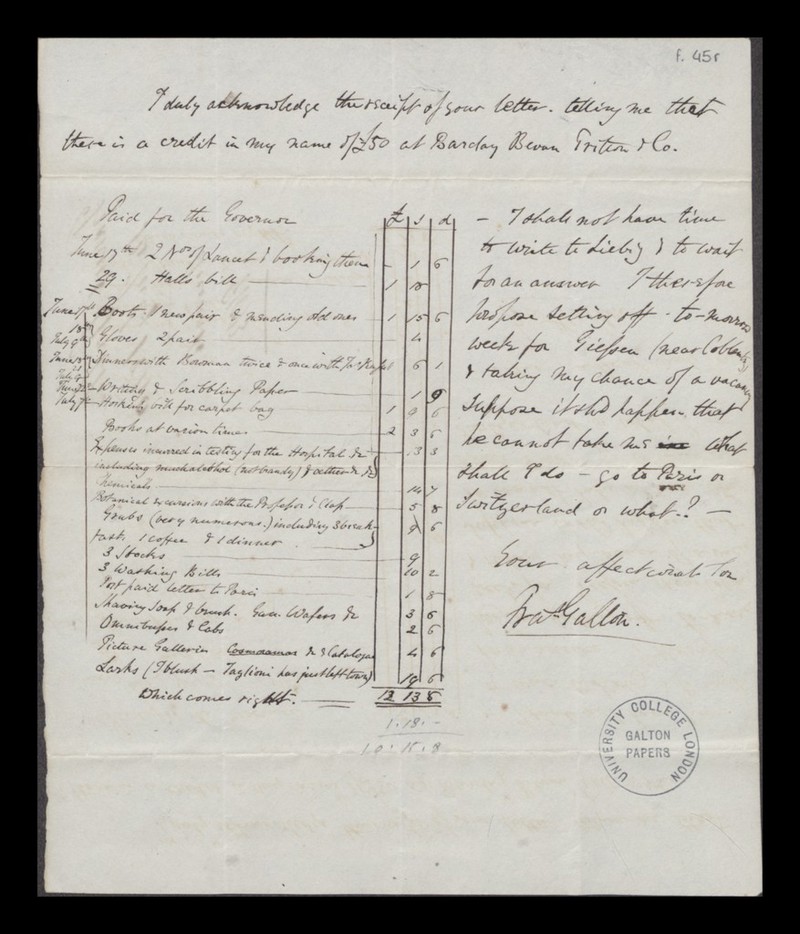 f. 45r
I duly acknowledge the receipt of your letter. telling me that
there is a credit in my name of £50 at Barclay Bevan Tritton & Co.
Paid for the Governor £ s d
June 17th 2 Nos of Lancet & booking them - 1 6
29. Halls bill 1 18
June 17th Boots. 1 new pair & mending old ones 1 15 6
18th July 9th Gloves 2 pair 4
June 18th Dinners with Bowman twice & once with 6 1
Writing & Scribbling Paper 1 9
July 7th for carpet bag 1 6
Books at various times 2 3 6
Expenses incurred in testing for the Hospital &c 13 3
including much alcohol (not brandy) & aether &c &c
Chemicals 14 7
Botanical excursions with the Professor & Class 5 8
Grubs (very numerous.) including 3 break- 9 6
fasts, 1 coffee & 1 dinner.
3 Stocks 9
3 Washing Bills 10 2
Post paid letter to Paris 1 8
Shaving Soap & brush. Gum. Wafers &c 3 6
Omnibuses & Cabs 2 6
Picture Galleries Cosmoramas &c & Catalogue 4 6
Larks (I blush - Taglioni has just left town) 19 6
Which comes right. 12 13 8
1 . 18 . -
10 . 15 . 8
- I shall not have time
to write to Liebig & to wait
for an answer I therefore
propose setting off to-morrow
week for Giessen (near Coblentz)
& taking my chance of a vacancy
Suppose it shd happen that
he cannot take me in what
shall I do - go to Paris or
Switzerland or what? -
Your affectionate Son
Fras Galton.
UNIVERSITY COLLEGE LONDON
GALTON
PAPERS